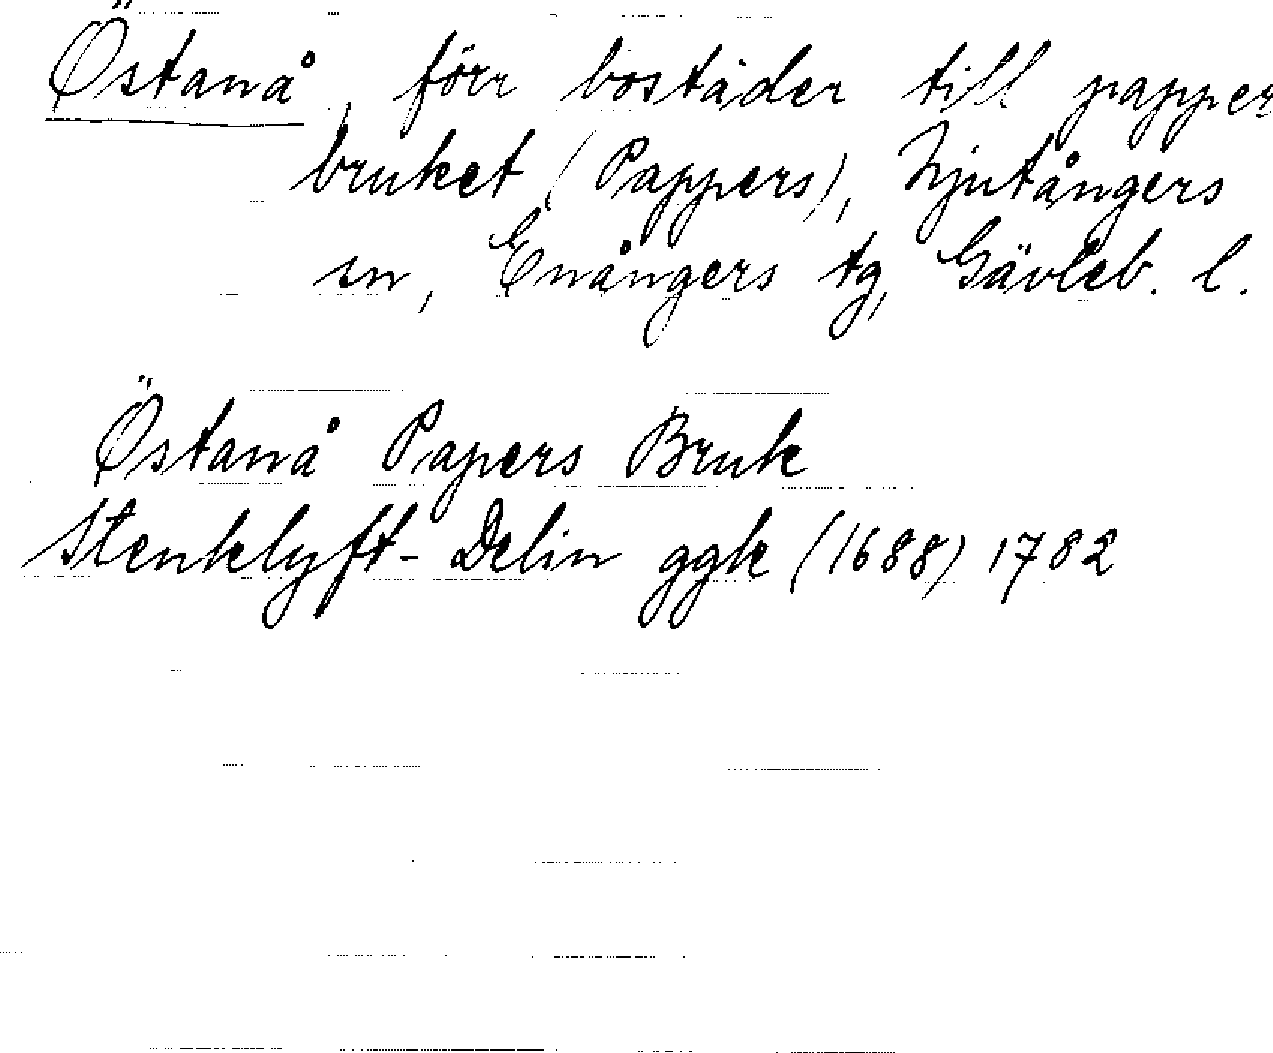 Östanå, förr bostäder till papper
bruket (Pappers), Njutångers
sn, Enångers tg, Gävleb. l.
Östanå Papers Bruk
Stenklyft- Delin ggk (1688) 1782